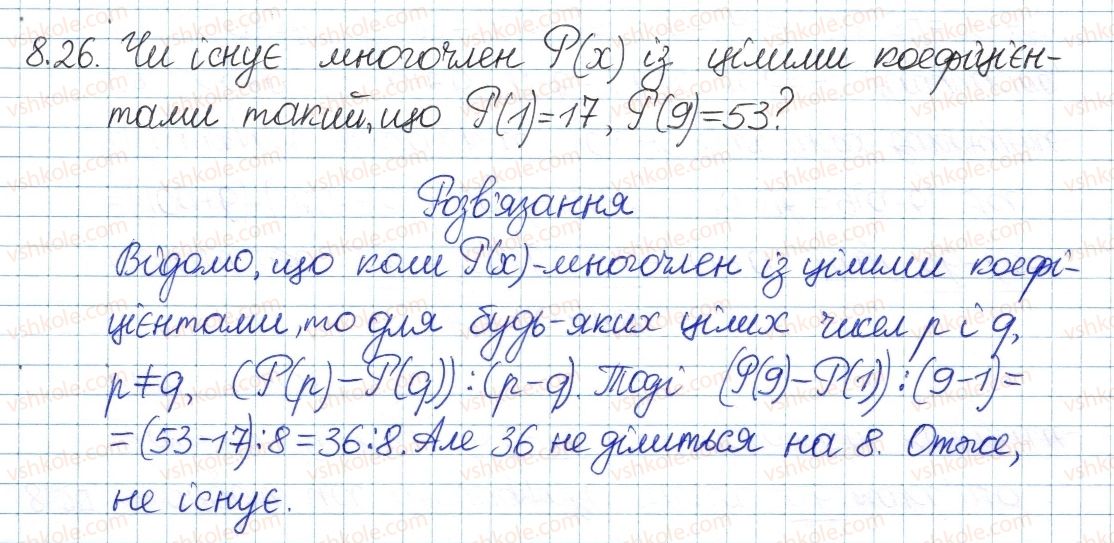 8.26. Чи існує многочлен P(x) із цілими коефіцієн-
тами такий, що P(1)=17, P(9)=53?
Розв'язання
Відомо, що коли P(x)-многочлен із цілими коефі-
цієнтами, то для будь-яких цілих чисел p і q,
p≠q, (P(p)-P(q)):(p-q). Тоді (P(9)-P(1)):(9-1)=
=(53-17):8=36:8. Але 36 не ділиться на 8. Отже,
не існує.